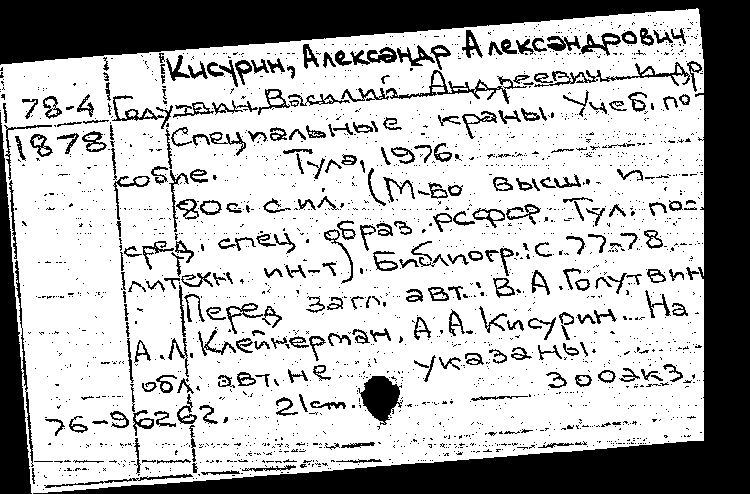 Кисурин, Александр Александрович
78-4 Голутвин, Василий Андреевич и др
1878 Специальные краны. Учеб. по-
собие. Тула, 1976.
80 с. с ил. (М-во высш. и
сред. спец. образ. РСФСР. Тул. по-
литехн. ин-т). Библиогр.: с. 77-78
Перед загл. авт.: В.А. Голутвин
А.Л. Клейнерман, А.А. Кисурин. На
обл. авт. не указаны.
76-96262. 21 cm. 300 экз.